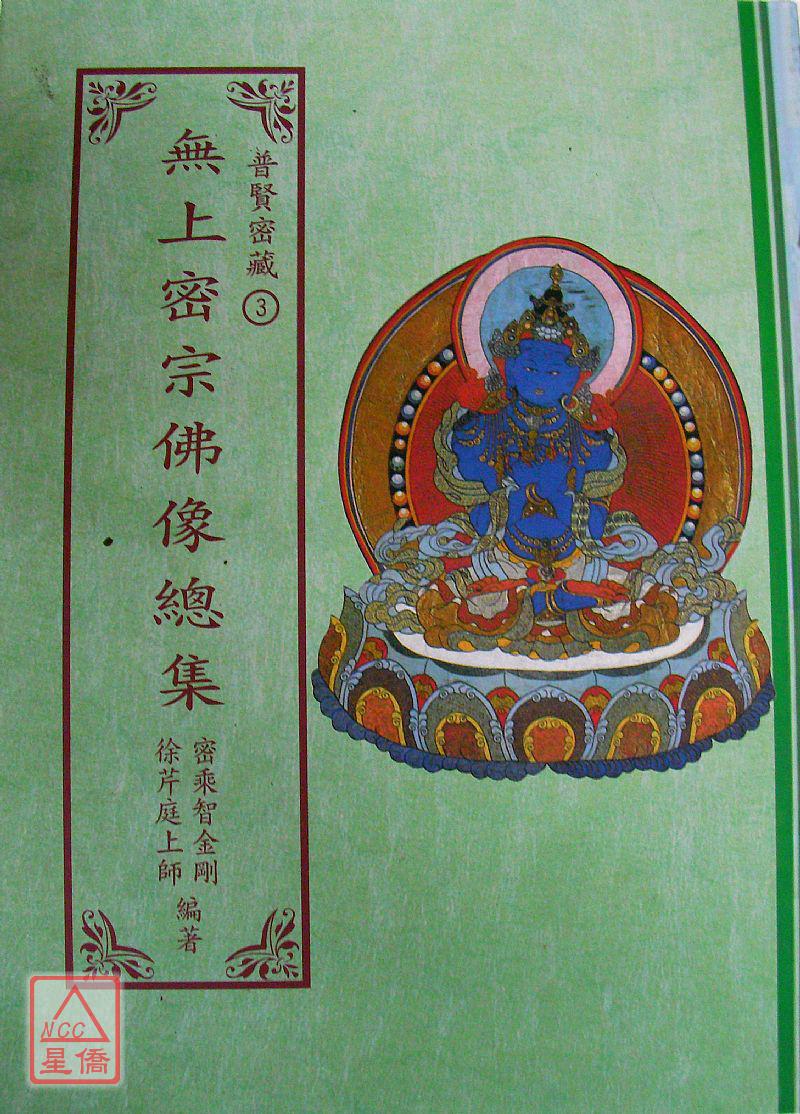 普賢密藏③
無上密宗佛像總集
密乘智金剛
徐芹庭上師
編著
NCC
星僑